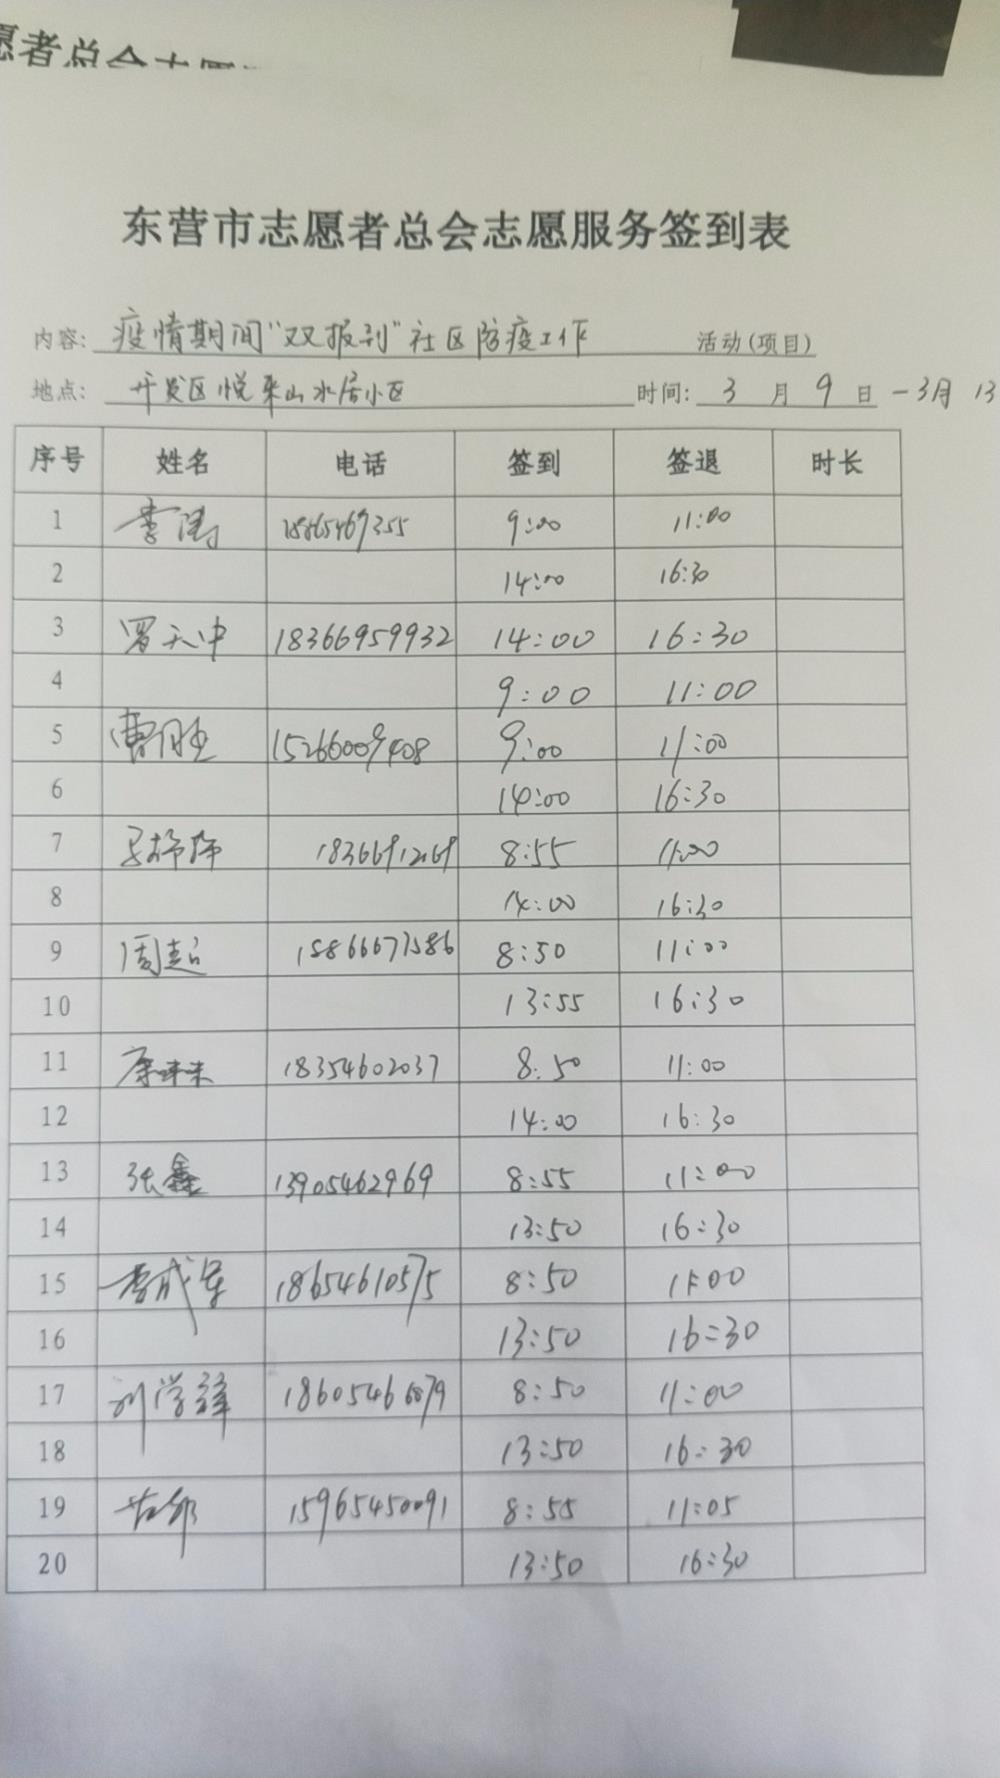 愿者总会志愿
东营市志愿者总会志愿服务签到表
内容: 疫情期间“双报到”社区防疫工作 活动(项目)
地点: 开发区悦来山水居小区 时间: 3 月 9 日 -3月 13
序号 姓名 电话 签到 签退 时长
1 李涛 18865469355 9:00 11:00
2 14:00 16:30
3 罗天中 18366959932 14:00 16:30
4 9:00 11:00
5 曹胜 15266009408 9:00 11:00
6 14:00 16:30
7 18366912169 8:55 11:00
8 14:00 16:30
9 周超 15866671586 8:50 11:00
10 13:55 16:30
11 18354602037 8:50 11:00
12 14:00 16:30
13 张鑫 13905462969 8:55 11:00
14 13:50 16:30
15 李成军 18654610575 8:50 11:00
16 13:50 16:30
17 刘学锋 18605466079 8:50 11:00
18 13:50 16:30
19 15965450091 8:55 11:05
20 13:50 16:30